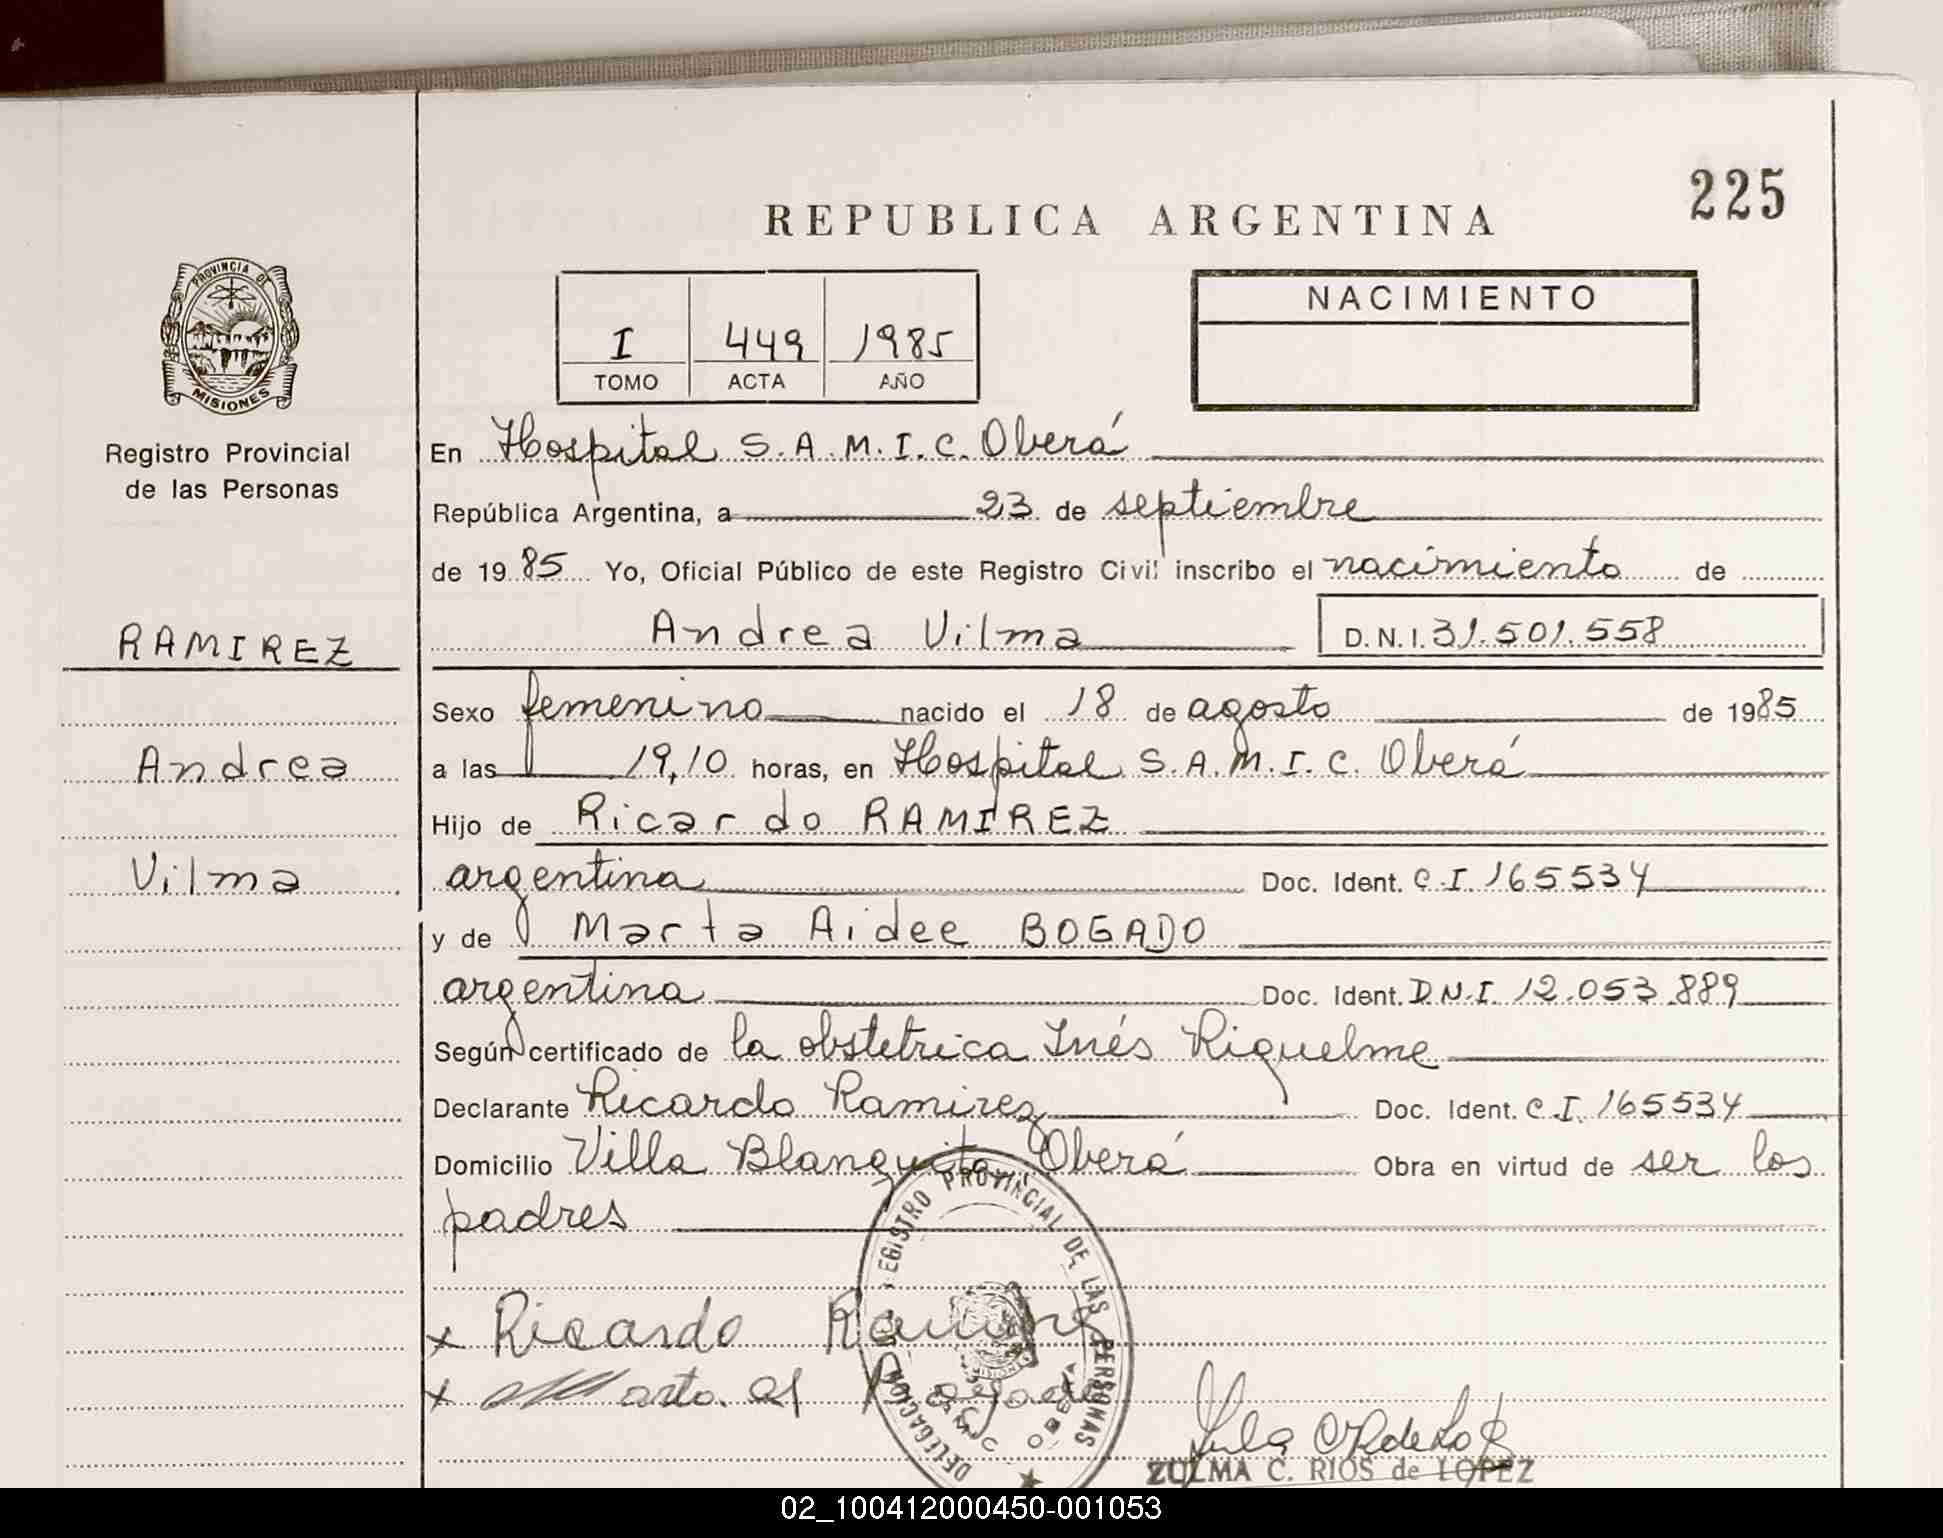 225
REPUBLICA ARGENTINA
PROVINCIA DE
MISIONES
Registro Provincial
de las Personas
NACIMIENTO
I 449 1985
TOMO ACTA AÑO
En Hospital S.A.M.I.C. Oberá
República Argentina, a 23 de septiembre
de 1985 Yo, Oficial Público de este Registro Civil inscribo el nacimiento de
RAMIREZ
Andrea Vilma D.N.I. 31.501.558
Sexo femenino nacido el 18 de agosto de 1985
Andrea
a las 19,10 horas, en Hospital S.A.M.I.C. Oberá
Hijo de Ricardo RAMIREZ
Vilma
argentina Doc. Ident. C.I. 165534
y de Marta Aidee BOGADO
argentina Doc. Ident. D.N.I. 12.053.889
Según certificado de la obstetrica Inés Riquelme
Declarante Ricardo Ramirez Doc. Ident. C.I. 165534
Domicilio Villa Blanquita, Oberá Obra en virtud de ser los
padres
REGISTRO PROVINCIAL DE LAS PERSONAS
DELEGACION
OBERA
x Ricardo Ramirez
x Marta Bogado
ZULMA C. RIOS de LOPEZ
02_100412000450-001053